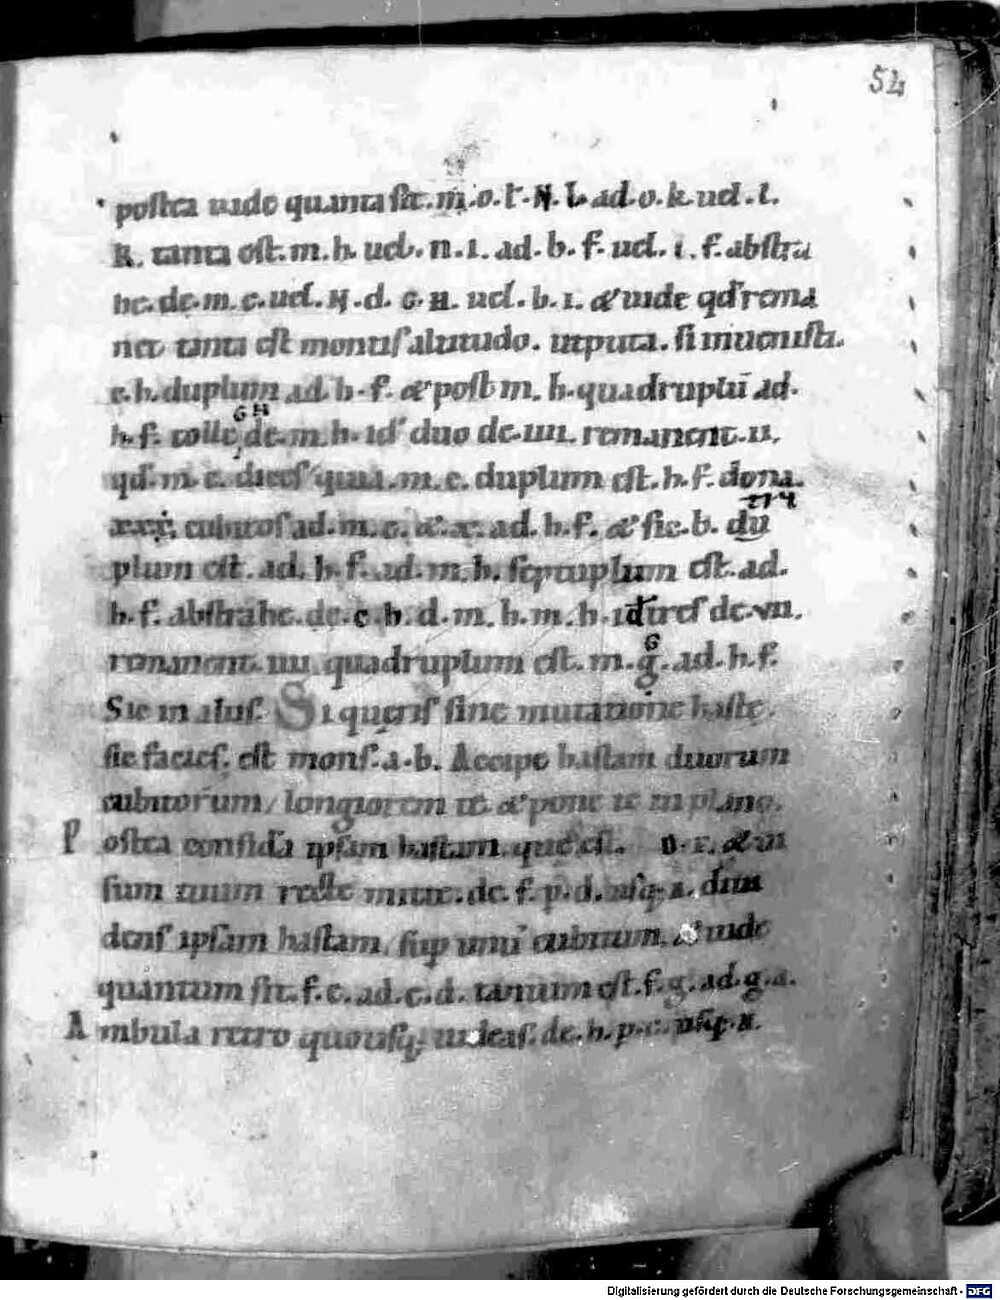 54
postea uide quanta sit .m.o.l. N. L. ad .o.k. uel .l.
K. tanta est .m.h. uel. n.i. ad. b. f. uel. i. f. abstra
he. de. m. c. uel. N. d. G. H. uel. b. i. & uide qđ rema
net tanta est montis altitudo. utputa. si
c. h. duplum ad. h. f. & post m. h. quadruplū ad.
GH
h. f. tolle de. m. h. id' duo de. iiii. remanent. ii.
qđ. m. c. dices quia. m. c. duplum est. h. f. dona.
xxx. cubitos ad. m. c. & x. ad. h. f. & sic. b. du
plum est. ad. h. f. ad. m. h. septuplum est. ad.
h. f. abstrahe. de. c. h. d. m. h. m. h. id tres de. vii.
G
remanent. iiii. quadruplum est. m. g. ad. h. f.
Sic in aliis. Si queris sine mutatione haste.
sic facies. est mons. a. b. Accipe hastam duorum
cubitorum longiorem te & pone te in plano.
Postea considera ipsam hastam que est. D. E. & ui
sum tuum recte mitte. de. f. p. d. usq; a. diui
dens ipsam hastam, sup unū cubitum. & uide
quantum sit. f. c. ad. c. d. tantum est. f. g. ad. g. a.
Ambula retro quousq; uideas. de. h. p. c. usq. a.
Digitalisierung gefördert durch die Deutsche Forschungsgemeinschaft - DFG